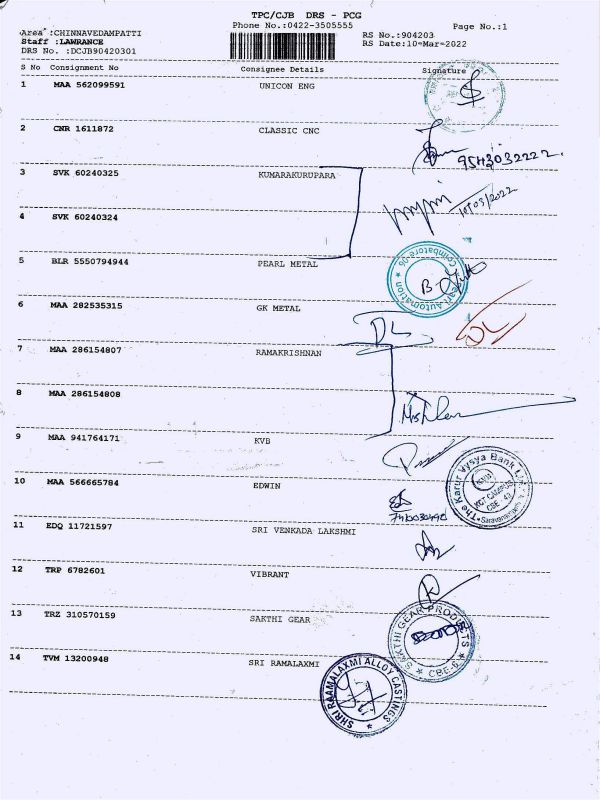 TPC/CJB DRS - PCG
Area :CHINNAVEDAMPATTI Phone No.:0422-3505555 Page No.:1
Staff :LAWRANCE RS No :904203
DRS No. :DCJB90420301 RS Date:10-Mar-2022
S No Consignment No Consignee Details Signature
1 MAA 562099591 UNICON ENG
2 CNR 1611872 CLASSIC CNC
9543032222.
3 SVK 60240325 KUMARAKURUPARA
10/03/2022
4 SVK 60240324
5 BLR 5550794944 PEARL METAL
Coimbatore-06
Pearl Automation
6 MAA 282535315 GK METAL
DL DL
7 MAA 286154807 RAMAKRISHNAN
8 MAA 286154808
9 MAA 941764171 KVB
The Karur Vysya Bank Ltd.
KCT CAMPUS
CBE - 49
10 MAA 566665784 EDWIN
11 EDQ 11721597 SRI VENKADA LAKSHMI
12 TRP 6782601 VIBRANT
13 TRZ 310570159 SAKTHI GEAR
SAKTHI GEAR PRODUCTS
CBE-6
14 TVM 13200948 SRI RAMALAXMI
SHRI RAAMALAXMI ALLOY CASTINGS